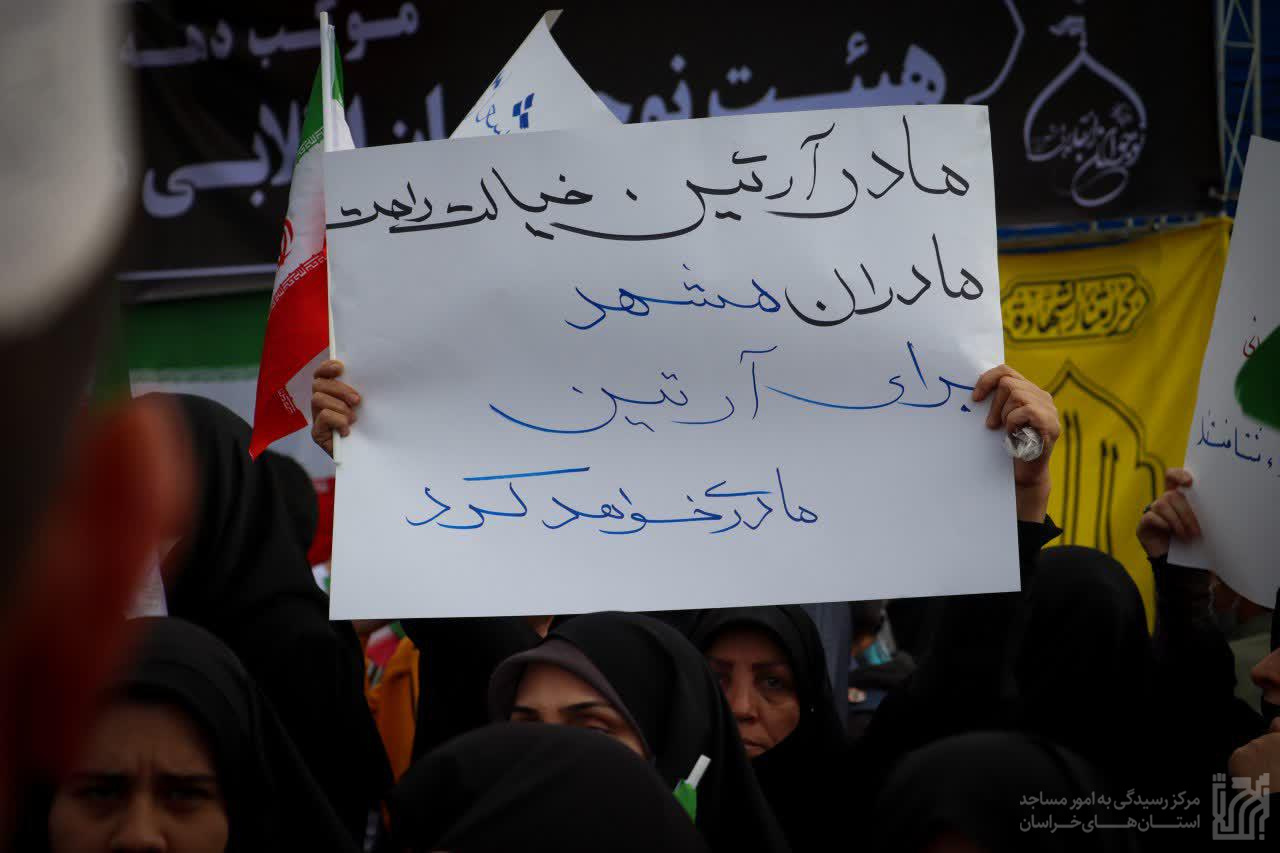 موکب دهه
هیئت نوجوانان انقلابی
مادر آرتین . خیالت راحت
مادران مشهد
برای آرتین
مادری خواهد کرد
مرکز رسیدگی به امور مساجد
استان‌های خراسان